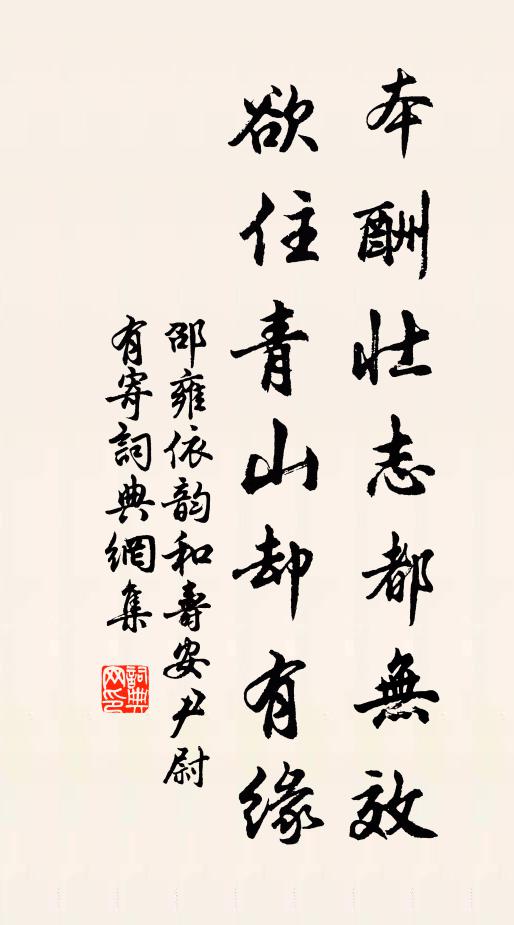 本酬壯志都無效
欲住青山却有緣
邵雍依韵和壽安尹尉
有寄詞典網集
詞典網印